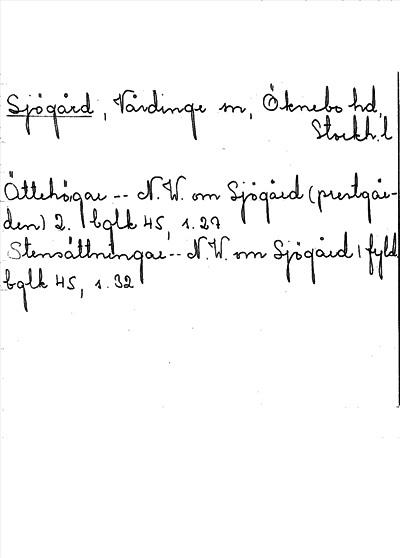 Sjögård, Vårdinge sn, Öknebo hd,
Stockh.l
Ättehögar -- N.W. om Sjögård (prestgår-
den) 2. bglk 45, s. 27
Stensättningar -- N.W. om Sjögård, fyld
bglk 45, s. 32